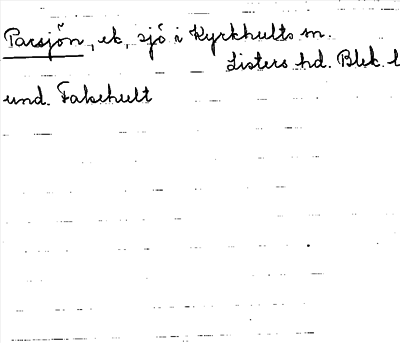 Parsjön, ek, sjö i Kyrkhults sn.
Listers hd. Blek. l
und. Falsehult